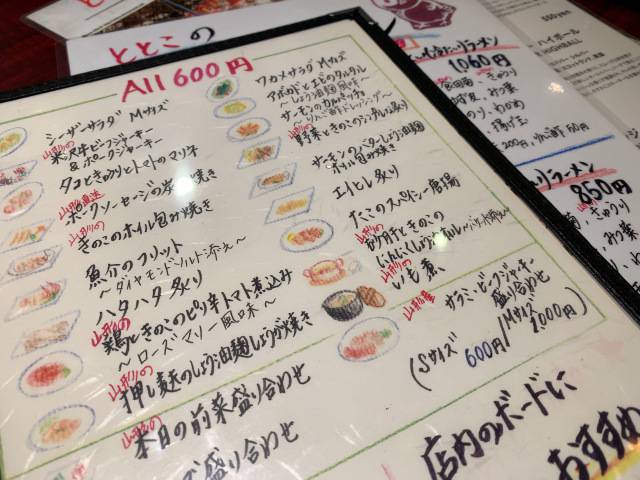 ととこの
All 600円
シーザーサラダ Mサイズ
山形の
米沢牛ビーフジャーキー
&ポークジャーキー
タコときのことトマトのマリネ
山形直送
ポークソーセージの炭焼き
山形の
きのこのホイル包み焼き
魚介のフリット
〜ダイヤモンドソルト添え〜
ハタハタ炙り
山形の
鶏ときのこのピリ辛トマト煮込み
〜ローズマリー風味〜
山形の
押し麦のしょう油麹しょうが焼き
山形の
本日の前菜盛り合わせ
盛り合わせ
ワカメサラダ Mサイズ
アボカドとエビのタルタル
〜しょう油麹風味〜
サーモンのカルパッチョ
〜りんご酢ドレッシング〜
山形の
野菜ときのこのアンチョビ炙り
サーモンのバターしょう油麹
ホイル包み焼き
エイヒレ炙り
たこのスパイシー唐揚
山形の
山形の
いも煮
山形産
サラミ・ビーフジャーキー
盛り合わせ
(Sサイズ 600円/Mサイズ 1,000円)
店内のボードに
おすすめ
ラーメン
1060円
きゅうり
みつ葉
わかめ
揚げ玉
60円
ラーメン
850円
きゅうり
みつ葉
ハイボール